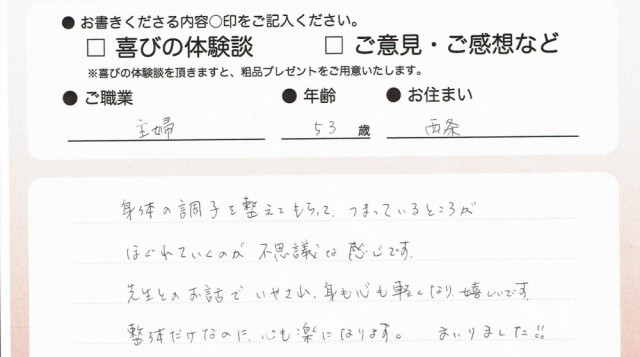 ● お書きくださる内容○印をご記入ください。
□ 喜びの体験談 □ ご意見・ご感想など
※喜びの体験談を頂きますと、粗品プレゼントをご用意いたします。
● ご職業 ● 年齢 ● お住まい
主婦 53 歳 西条
身体の調子を整えてもらって、つまっているところが
ほぐれていくのが 不思議な感じです。
先生とのお話で いやされ、身も心も軽くなり、嬉しいです。
整体だけなのに、心も楽になります。 まいりました!!